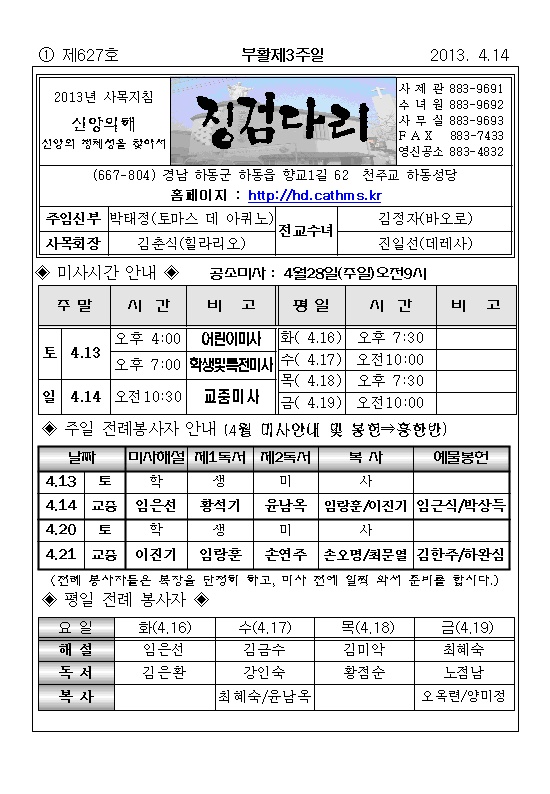 ① 제627호 부활제3주일 2013. 4.14
2013년 사목지침
신앙의해
신앙의 정체성을 찾아서
징검다리
사 제 관 883-9691
수 녀 원 883-9692
사 무 실 883-9693
F A X 883-7433
영신공소 883-4832
(667-804) 경남 하동군 하동읍 향교1길 62 천주교 하동성당
홈페이지 : http://hd.cathms.kr
주임신부 박태정(토마스 데 아퀴노) 전교수녀 김정자(바오로)
사목회장 김춘식(힐라리오) 진일선(데레사)
◈ 미사시간 안내 ◈ 공소미사 : 4월28일(주일)오전9시
주 말 시 간 비 고 평 일 시 간 비 고
토 4.13 오후 4:00 어린이미사 화( 4.16) 오후 7:30
오후 7:00 학생및특전미사 수( 4.17) 오전10:00
목( 4.18) 오후 7:30
일 4.14 오전10:30 교중미사 금( 4.19) 오전10:00
◈ 주일 전례봉사자 안내 (4월 미사안내 및 봉헌⇒흥한반)
날짜 미사해설 제1독서 제2독서 복 사 예물봉헌
4.13 토 학 생 미 사
4.14 교중 임은선 황석기 윤남옥 임랑훈/이진기 임근식/박상득
4.20 토 학 생 미 사
4.21 교중 이진기 임랑훈 손연주 손오명/최문열 김한주/하완심
(전례 봉사자들은 복장을 단정히 하고, 미사 전에 일찍 와서 준비를 합시다.)
◈ 평일 전례 봉사자 ◈
요 일 화(4.16) 수(4.17) 목(4.18) 금(4.19)
해 설 임은선 김금수 김미악 최혜숙
독 서 김은환 강인숙 황점순 노점남
복 사 최혜숙/윤남옥 오옥련/양미정